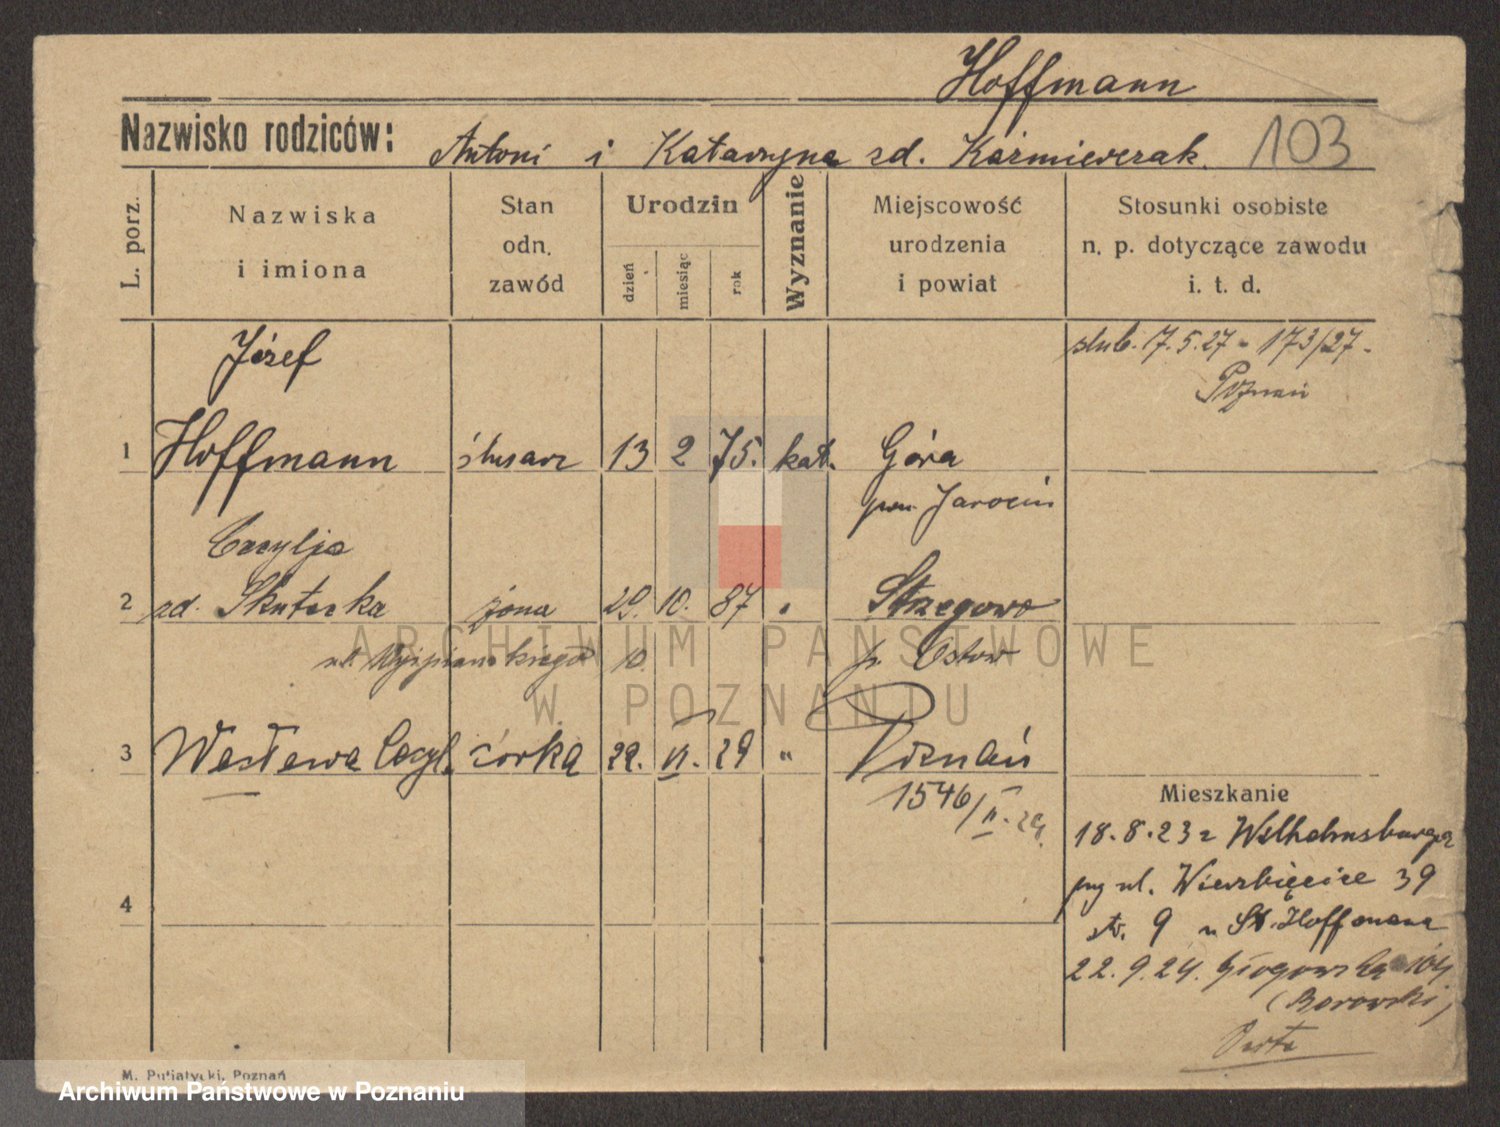 Hoffmann
Nazwisko rodziców: Antoni i Katarzyna zd. Kaźmierczak 103
L. porz.
Nazwiska
i imiona
Stan
odn.
zawód
Urodzin
dzień
miesiąc
rok
Wyznanie
Miejscowość
urodzenia
i powiat
Stosunki osobiste
n. p. dotyczące zawodu
i. t. d.
Józef
ślub. 7.5.27 - 173/27 -
Poznań
1 Hoffmann ślusarz 13 2 75. kat. Góra
pow. Jarocin
Cecylja
2 zd. żona 29. 10. 87 " Strzegowo
ul. Wyspiańskiego 10. p. Ostrów
3 Wesława Cecyl. córka 22. VI. 29 " Poznań
1546/II. 29.
Mieszkanie
18.8.23 z Wilhelmsburga
ul. Wierzbięcice 39
9 u St. Hoffmana
4
22.9.24. Głogowska 104
(Borowski)
Warta
M. Putiatycki, Poznań
ARCHIWUM PAŃSTWOWE
W POZNANIU
Archiwum Państwowe w Poznaniu